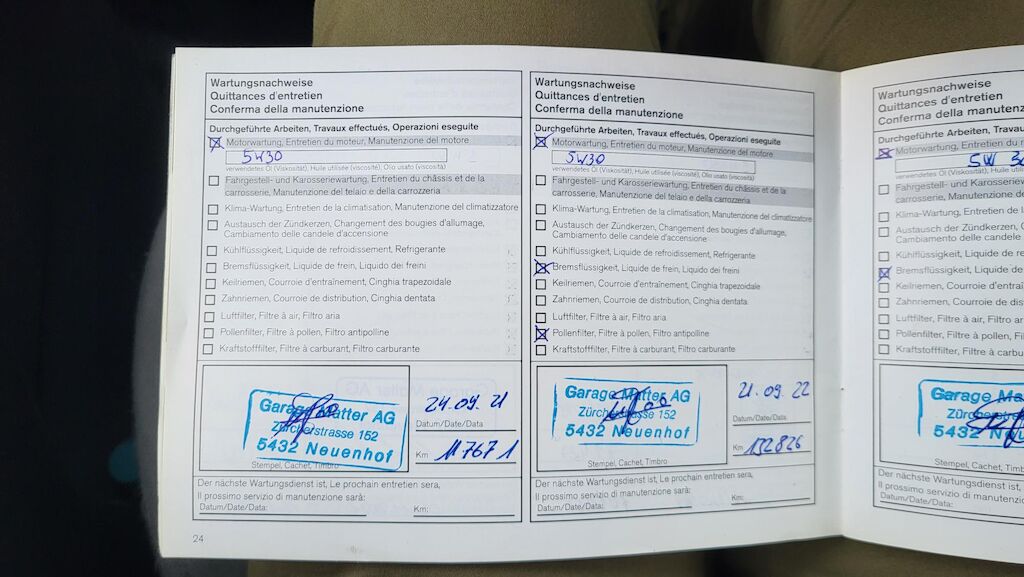 Wartungsnachweise
Quittances d'entretien
Conferma della manutenzione
Durchgeführte Arbeiten, Travaux effectués, Operazioni eseguite
Motorwartung, Entretien du moteur, Manutenzione del motore
5W30
verwendetes Öl (Viskosität), Huile utilisée (viscosité), Olio usato (viscosità)
Fahrgestell- und Karosseriewartung, Entretien du châssis et de la
carrosserie, Manutenzione del telaio e della carrozzeria
Klima-Wartung, Entretien de la climatisation, Manutenzione del climatizzatore
Austausch der Zündkerzen, Changement des bougies d'allumage,
Cambiamento delle candele d'accensione
Kühlflüssigkeit, Liquide de refroidissement, Refrigerante
Bremsflüssigkeit, Liquide de frein, Liquido dei freini
Keilriemen, Courroie d'entraînement, Cinghia trapezoidale
Zahnriemen, Courroie de distribution, Cinghia dentata
Luftfilter, Filtre à air, Filtro aria
Pollenfilter, Filtre à pollen, Filtro antipolline
Kraftstofffilter, Filtre à carburant, Filtro carburante
Garage Matter AG
Zürcherstrasse 152
5432 Neuenhof
Stempel, Cachet, Timbro
24.09.21
Datum/Date/Data
Km
117671
Der nächste Wartungsdienst ist, Le prochain entretien sera,
Il prossimo servizio di manutenzione sarà:
Datum/Date/Data:
Km:
24
Wartungsnachweise
Quittances d'entretien
Conferma della manutenzione
Durchgeführte Arbeiten, Travaux effectués, Operazioni eseguite
Motorwartung, Entretien du moteur, Manutenzione del motore
5W30
verwendetes Öl (Viskosität), Huile utilisée (viscosité), Olio usato (viscosità)
Fahrgestell- und Karosseriewartung, Entretien du châssis et de la
carrosserie, Manutenzione del telaio e della carrozzeria
Klima-Wartung, Entretien de la climatisation, Manutenzione del climatizzatore
Austausch der Zündkerzen, Changement des bougies d'allumage,
Cambiamento delle candele d'accensione
Kühlflüssigkeit, Liquide de refroidissement, Refrigerante
Bremsflüssigkeit, Liquide de frein, Liquido dei freini
Keilriemen, Courroie d'entraînement, Cinghia trapezoidale
Zahnriemen, Courroie de distribution, Cinghia dentata
Luftfilter, Filtre à air, Filtro aria
Pollenfilter, Filtre à pollen, Filtro antipolline
Kraftstofffilter, Filtre à carburant, Filtro carburante
Garage Matter AG
Zürcherstrasse 152
5432 Neuenhof
Stempel, Cachet, Timbro
21.09.22
Datum/Date/Data
Km
132826
Der nächste Wartungsdienst ist, Le prochain entretien sera,
Il prossimo servizio di manutenzione sarà:
Datum/Date/Data:
Km:
Wartungsnachweise
Quittances d'entretien
Conferma della manutenzione
Durchgeführte Arbeiten, Travaux
Motorwartung, Entretien du mote
5W 30
verwendetes Öl (Viskosität), Huile utilisée
Fahrgestell- und Karosseriewartu
carrosserie, Manutenzione del te
Klima-Wartung, Entretien de la
Austausch der Zündkerzen, Ch
Cambiamento delle candele d'a
Kühlflüssigkeit, Liquide de ref
Bremsflüssigkeit, Liquide de
Keilriemen, Courroie d'entraî
Zahnriemen, Courroie de dis
Luftfilter, Filtre à air, Filtro ar
Pollenfilter, Filtre à pollen, F
Kraftstofffilter, Filtre à carbu
Garage Ma
Zürch
5432 Neu
Stempel,
Der nächste Wartungsdienst ist,
Il prossimo servizio di manutenzio
Datum/Date/Data: